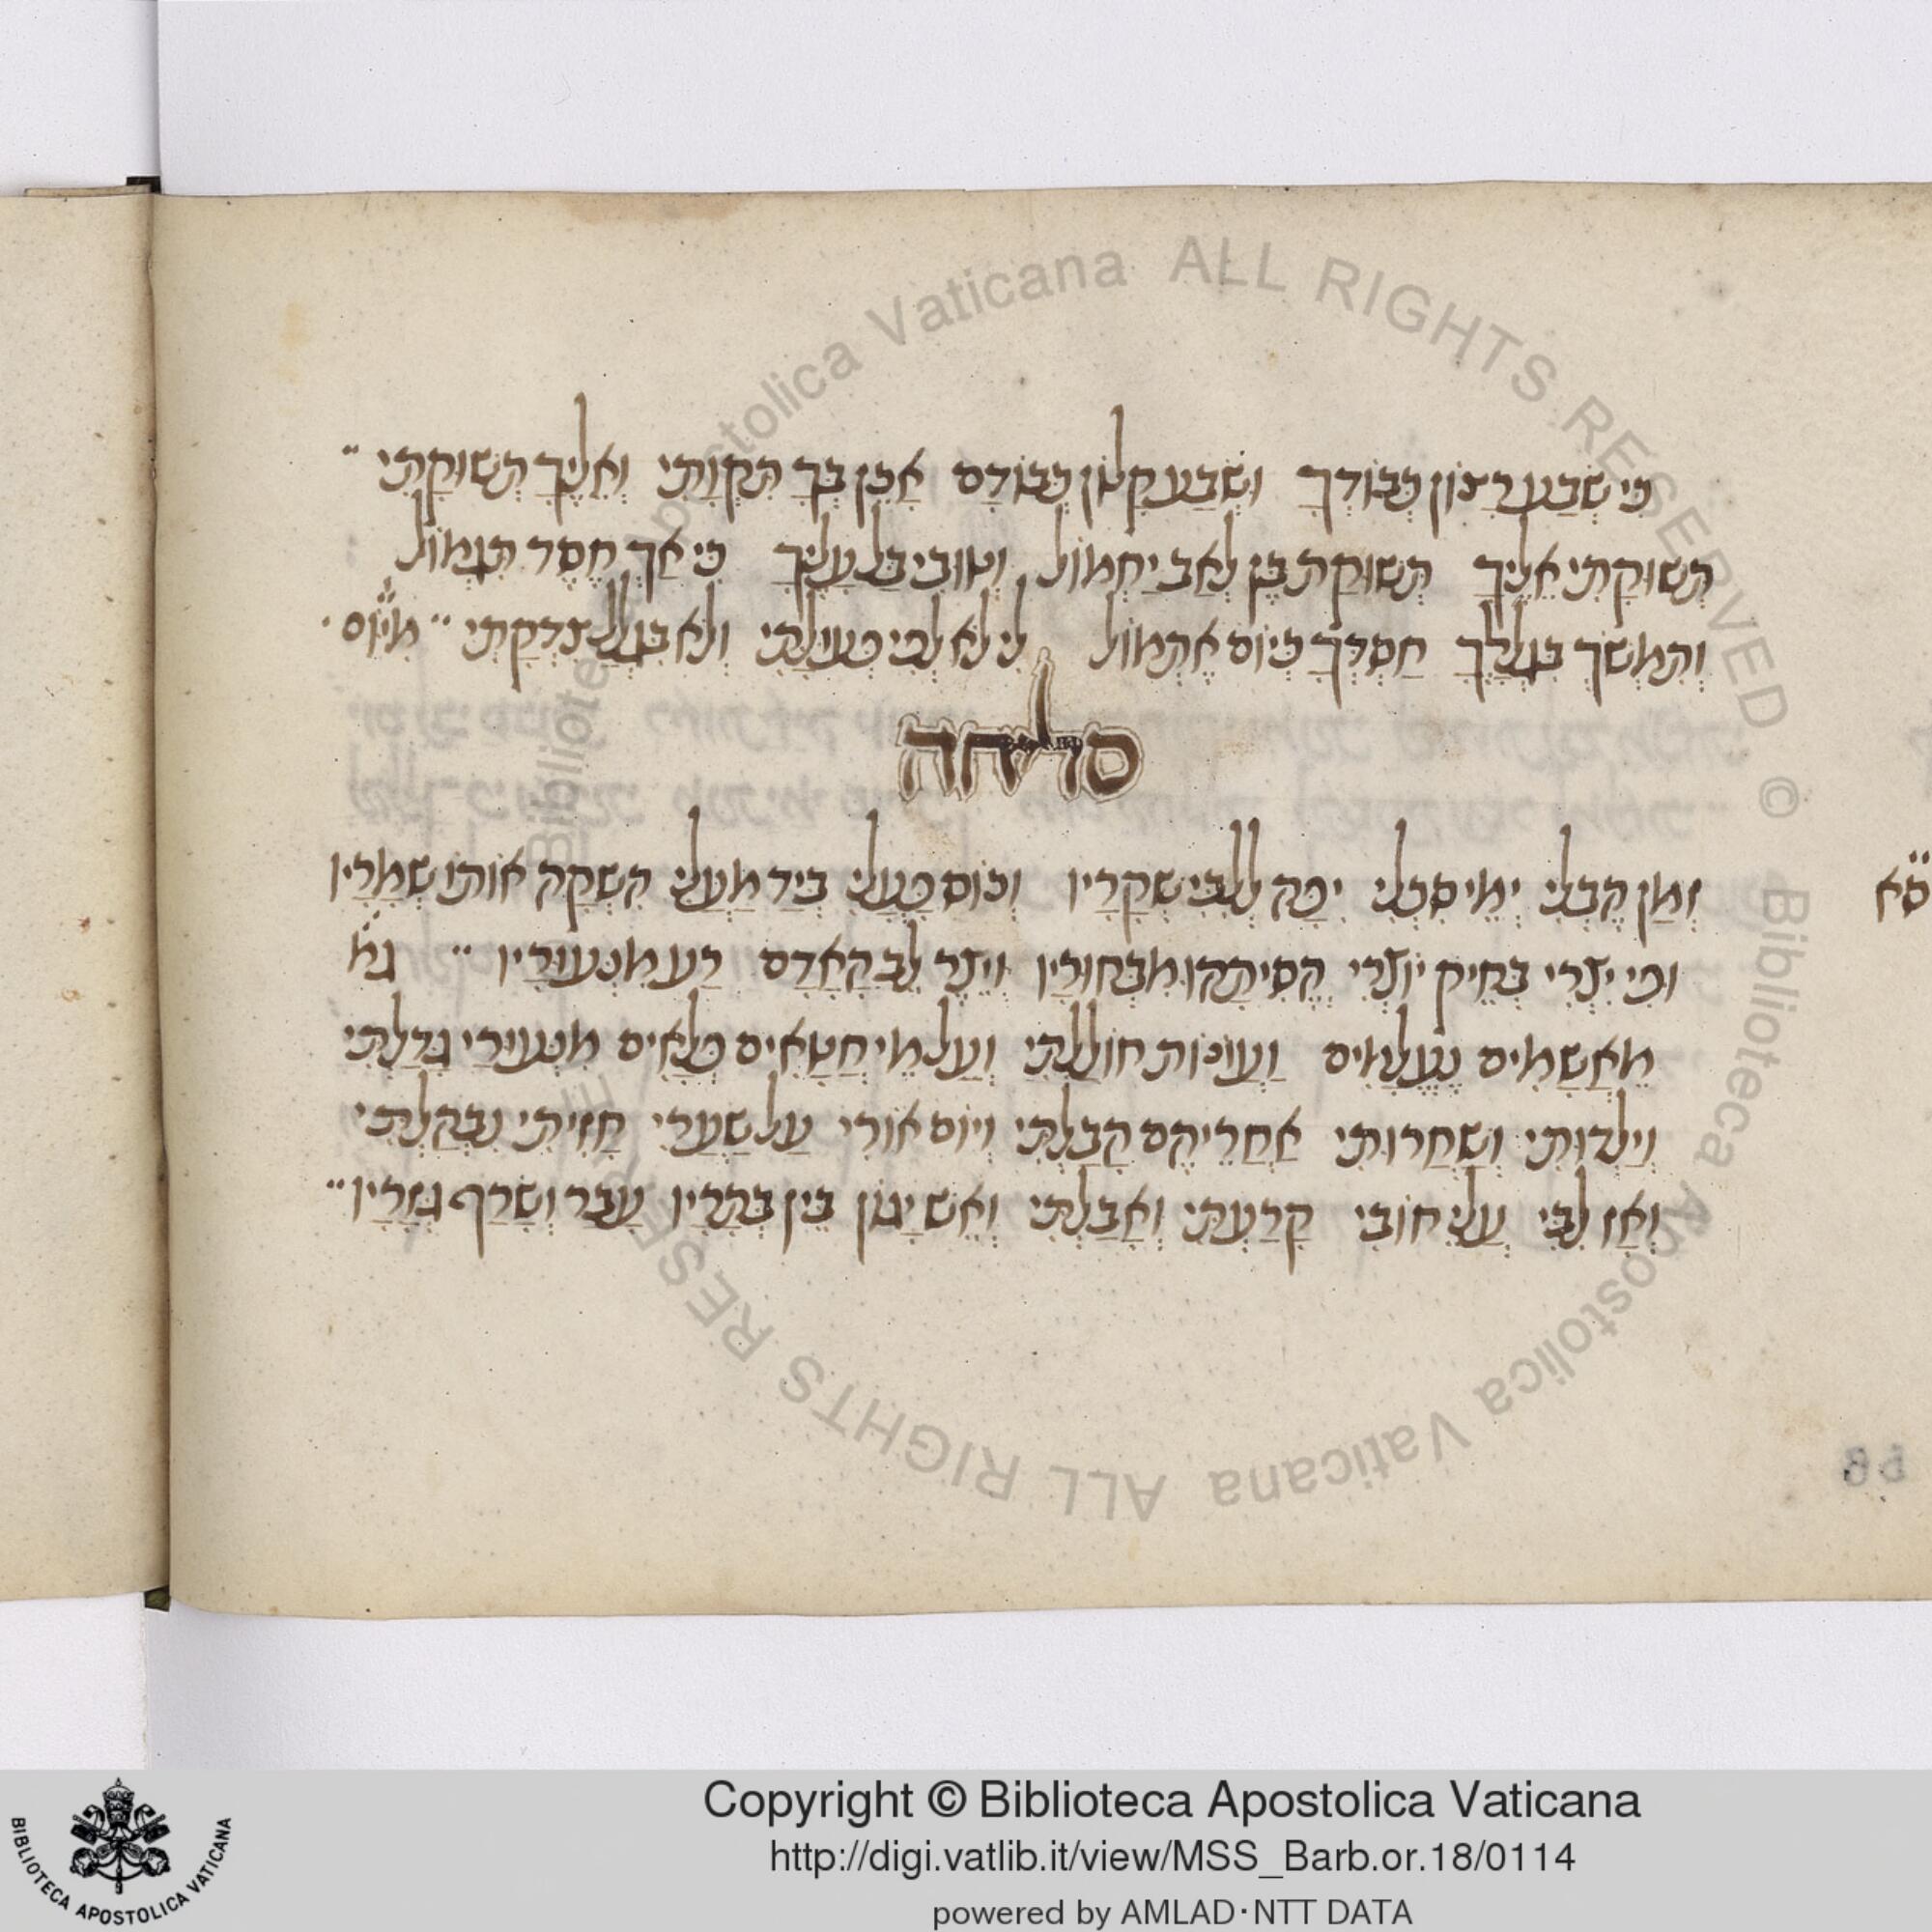 כִּי שְׂבַע רָצוֹן כְּבוֹדֶךָ וּשְׂבַע קָלוֹן כְּבוֹדָם אָכֵן בְּךָ תִּקְוָתִי וְאֵלֶיךָ תְשׁוּקָתִי
תְּשׁוּקָתִי אֵלֶיךָ תְּשׁוּקַת בֵּן לְאָב יַחְמוֹל וְטוּבִי בַל עָלֶיךָ כִּי אַךְ חֶסֶד תִּגְמוֹל
וְתִמְשֹׁךְ בִּגְלָלֶךָ חַסְדְּךָ כְּיוֹם אֶתְמוֹל לִי לֹא לְפִי פְעֻלָּתִי וְלֹא בִגְלַל צִדְקָתִי
סליחה
זְמַן הֶבְלִי יְמֵי סִכְלִי יִכָּה לְלִבִּי שִׁקְרָיו וְכוֹס פָּעֳלִי בְּיַד מַעֲלִי הִשְׁקָה אוֹתוֹ שְׁמָרָיו
סא
וּכִי יִצְרִי בְּחֵיק יוֹצְרִי הֱסִיתָהוּ מִבְּחוּרָיו וְיֵצֶר לֵב הָאָדָם רַע מִנְּעוּרָיו
מֵאֲשָׁמִים נֶעֱלָמִים וַעֲוֹנוֹת חוֹלַלְתִּי וְעַל מֵי חֲטָאִים כְּלָאִים מִנְּעוּרַי גָּדַלְתִּי
וְיַלְדוּתִי וְשַׁחֲרוּתִי אַחֲרֵיהֶם הָבַלְתִּי וְיוֹם אוֹרִי עַל שְׂעָרִי חָזִיתִי נִבְהַלְתִּי
וְאָז לִבִּי עֲלֵי חוֹבִי קָרַעְתִּי וְאָבַלְתִּי וְאֵשׁ יָגוֹן בֵּין בְּתָרָיו עָבַר וְשָׂרַף גְּזָרָיו
Copyright © Biblioteca Apostolica Vaticana
http://digi.vatlib.it/view/MSS_Barb.or.18/0114
powered by AMLAD·NTT DATA
BIBLIOTECA APOSTOLICA VATICANA
Biblioteca Apostolica Vaticana ALL RIGHTS RESERVED ©
Biblioteca Apostolica Vaticana ALL RIGHTS RESE